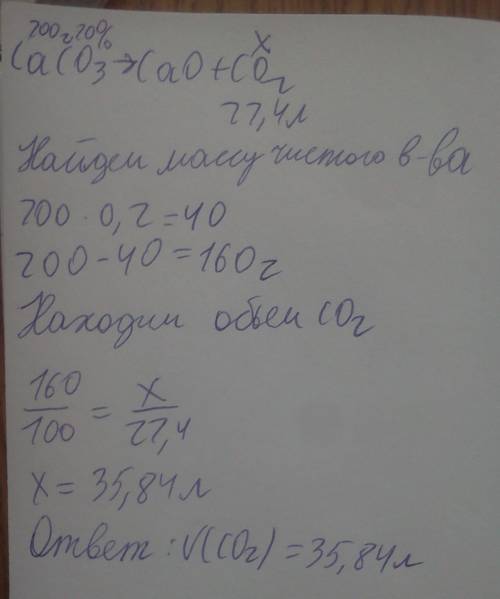 200г 20% x
CaCO₃→CaO+CO₂
22,4л
Найдем массу чистого в-ва
200 · 0,2 = 40
200 - 40 = 160г
Находим объем CO₂
160/100 = x/22,4
X = 35,84л
Ответ: V(CO₂) = 35,84л